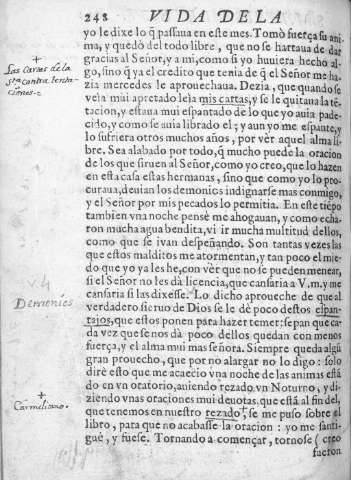 248 VIDA DE LA
yo le dixe lo q̃ passaua en este mes. Tomò fuerça su ani-
ma, y quedò del todo libre, que no se hartaua de dar
gracias al Señor, y a mi, como si yo huuiera hecho al-
go, sino q̃ ya el credito que tenia de q̃ el Señor me ha-
zia mercedes le aprouechaua. Dezia, que quando se
veia mui apretado leia mis cartas, y se le quitaua la tẽ-
tacion, y estaua mui espantado de lo que yo auia pade-
cido, y como se auia librado el; y aun yo me espante, y
lo sufriera otros muchos años, por vèr aquel alma li-
bre. Sea alabado por todo, q̃ mucho puede la oracion
de los que siruen al Señor, como yo creo, que lo hazen
en esta casa estas hermanas, sino que como yo lo pro-
curaua, deuian los demonios indignarse mas conmigo,
y el Señor por mis pecados lo permitia. En este tiẽpo
tambien vna noche pensè me ahogauan, y como echa-
ron mucha agua bendita, vi ir mucha multitud dellos,
como que se ivan despeñando. Son tantas vezes las
que estos malditos me atormentan, y tan poco el mie-
do que yo ya les he, con vèr que no se pueden menear,
si el Señor no les dà licencia, que cansaria a V.m. y me
cansaria si las dixesse. Lo dicho aproueche de que al
verdadero sieruo de Dios se le dè poco destos espan-
tajos, que estos ponen para hazer temer: sepan que ca-
da vez que se nos dà poco dellos quedan con menos
fuerça, y el alma mui mas señora. Siempre queda algũ
gran prouecho, que por no alargar no lo digo: solo
dirè esto que me acaeciò vna noche de las animas està
do en vn oratorio, auiendo rezado vn Noturno, y di-
ziendo vnas oraciones mui deuotas, que està al fin del,
que tenemos en nuestro rezado †, se me puso sobre el
libro, para que no acabasse la oracion: yo me santi-
guè, y fuese. Tornando a començar, tornose (creo
fueron
+
Las Cartas de la
Sta contra tenta-
ciones
Demonios
+
Carmelitano.